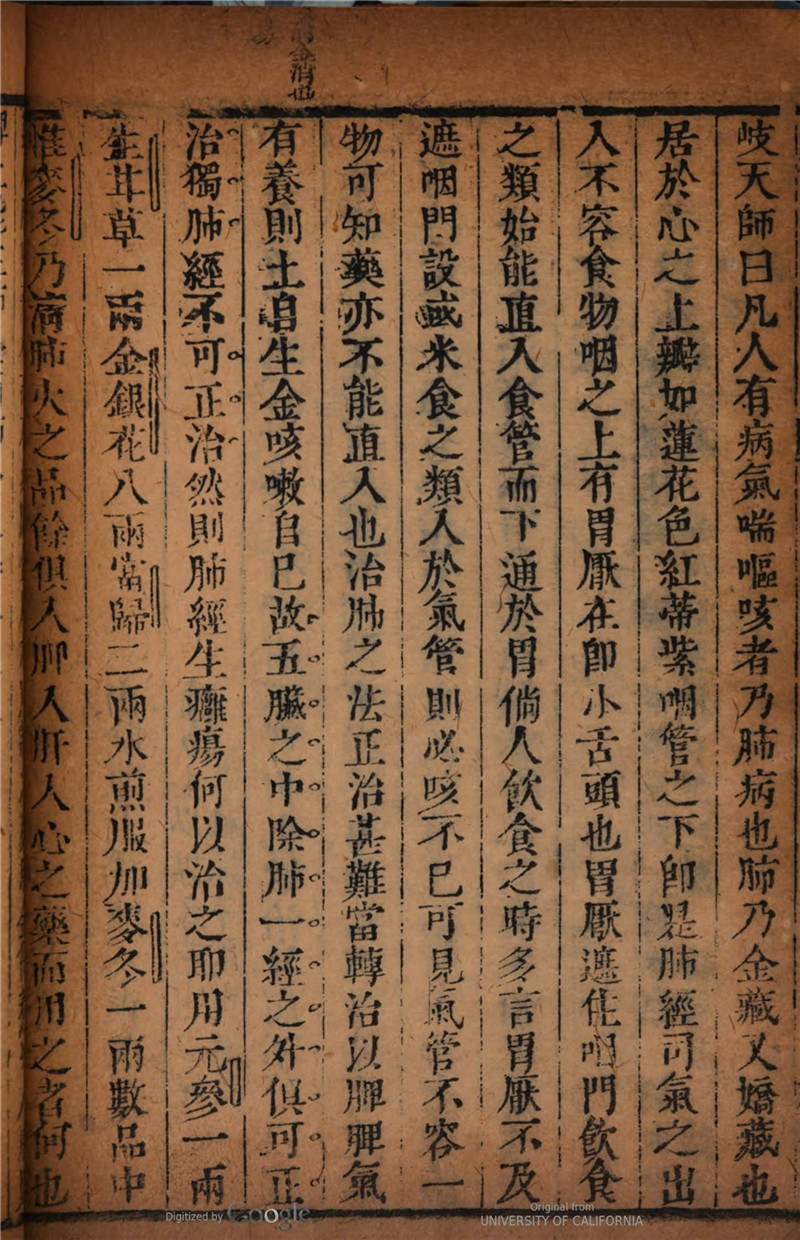 岐天師曰凡人有病氣喘嘔咳者乃肺病也肺乃金藏又嬌藏也
居於心之上瓣如蓮花色紅蒂紫咽管之下卽是肺經司氣之出
入不容食物咽之上有胃厭在卽小舌頭也胃厭遮住咽門飲食
之類始能直入食管而下通於胃倘人飲食之時多言胃厭不及
遮咽門設或米食之類入於氣管則必咳不已可見氣管不容一
物可知藥亦不能直入也治肺之法正治甚難當轉治以脾脾氣
有養則土自生金咳嗽自已故五臟之中除肺一經之外俱可正
治獨肺經不可正治然則肺經生癰瘍何以治之耶用元參一兩
生甘草一兩金銀花八兩當歸二兩水煎服加麥冬一兩數品中
惟麥冬乃瀉肺火之品餘俱入脾入肝入心之藥而用之者何也
消也
Digitized by Google
Original from
UNIVERSITY OF CALIFORNIA